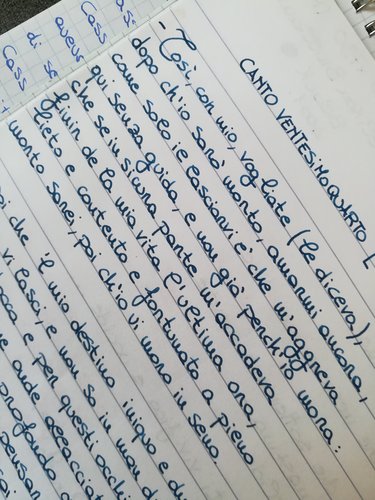 CANTO VENTESIMOQUARTO
- Così, cor mio, vogliate (le diceva),
dopo ch'io sarò morto, amarmi ancora,
come solo il lasciarvi è che m'aggreva
qui senza guida, e non già perch'io mora:
che se in sicura parte m'accadeva
finir de la mia vita l'ultima ora,
lieto e contento e fortunato a pieno
morto sarei, poi ch'io vi moro in seno.
che 'l mio destino iniquo e
vi lasci, e non so in man
e per questi occhi
onde
profondo
Cass
di se
aveva
Cass